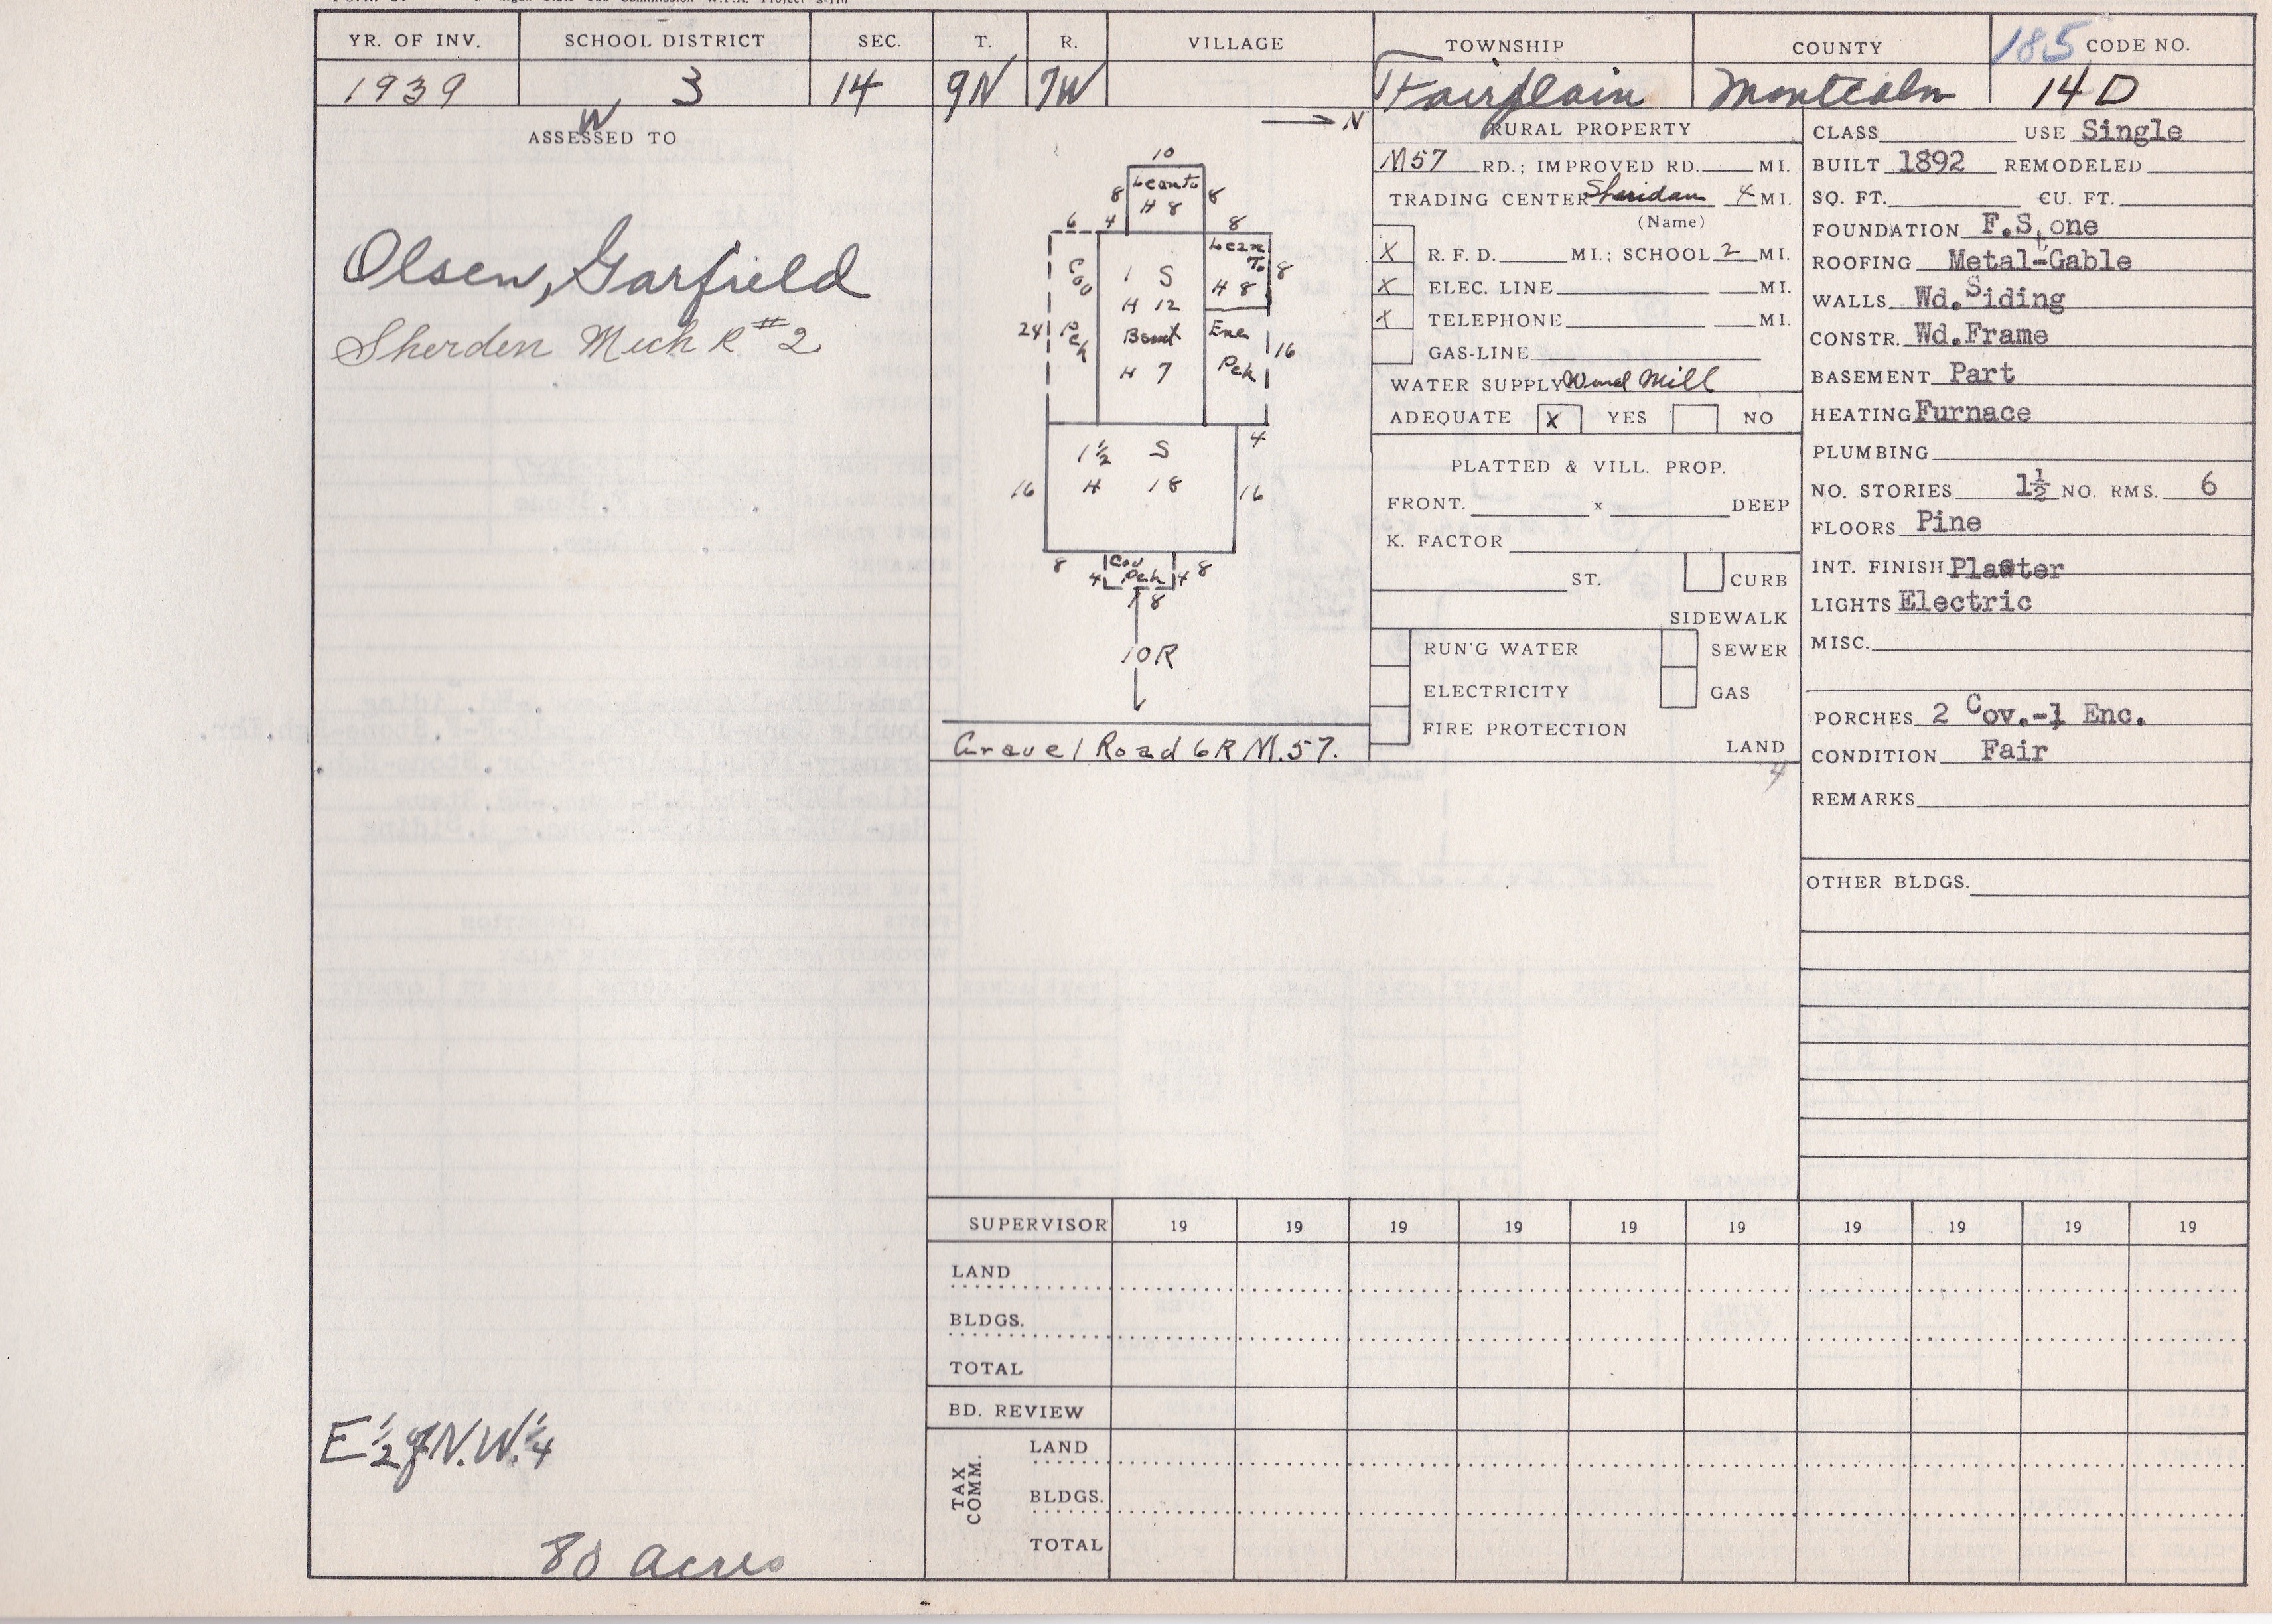 YR. OF INV. SCHOOL DISTRICT SEC. T. R. VILLAGE TOWNSHIP COUNTY 185 CODE NO.
1939 3 14 9N 7W Fairplain Montcalm 14D
W
ASSESSED TO
Olsen, Garfield
Sherden Mich R #2
E 1/2 of N.W. 1/4
80 acres
N
10
8 Leanto 8
H 8
6 4 8
Cov Pch
24
1 S
H 12
Bsmt
H 7
Lean To 8
H 8
Enc
Pch
16
4
1 1/2 S
H 18
16 16
8 Cov 8
4 Pch 4
8
10R
Gravel Road 6R M.57.
RURAL PROPERTY
M57 RD.; IMPROVED RD. MI.
TRADING CENTER Sheridan 4 MI.
(Name)
X R. F. D. MI.; SCHOOL 2 MI.
X ELEC. LINE MI.
X TELEPHONE MI.
GAS-LINE
WATER SUPPLY Wind Mill
ADEQUATE X YES NO
PLATTED & VILL. PROP.
FRONT. x DEEP
K. FACTOR
ST. CURB
SIDEWALK
RUN'G WATER SEWER
ELECTRICITY GAS
FIRE PROTECTION
LAND
4
CLASS USE Single
BUILT 1892 REMODELED
SQ. FT. CU. FT.
FOUNDATION F.Stone
ROOFING Metal-Gable
WALLS Wd.Siding
CONSTR. Wd.Frame
BASEMENT Part
HEATING Furnace
PLUMBING
NO. STORIES 1½ NO. RMS. 6
FLOORS Pine
INT. FINISH Plaster
LIGHTS Electric
MISC.
PORCHES 2 Cov.-1 Enc.
CONDITION Fair
REMARKS
OTHER BLDGS.
SUPERVISOR 19 19 19 19 19 19 19 19 19 19
LAND
BLDGS.
TOTAL
BD. REVIEW
TAX COMM.
LAND
BLDGS.
TOTAL